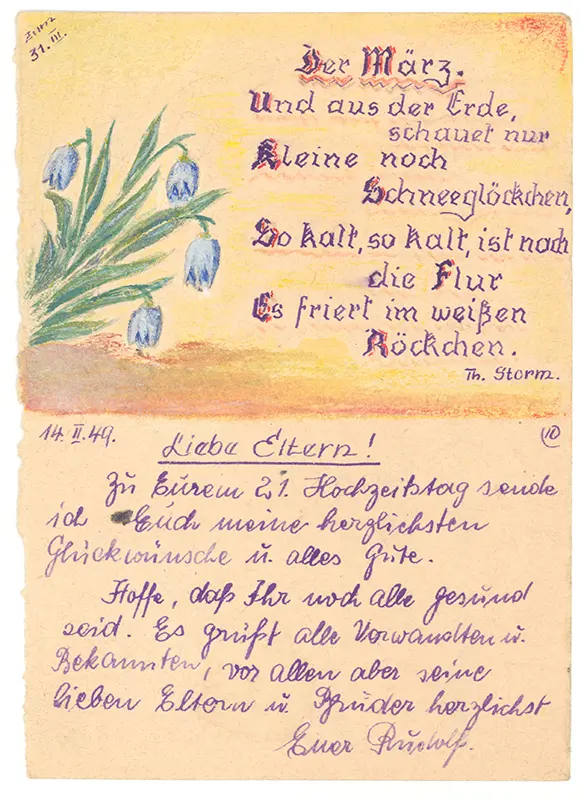 Zum
31. III.
Der März.
Und aus der Erde,
schauet nur
Kleine noch
Schneeglöckchen,
So kalt, so kalt, ist noch
die Flur
Es friert im weißen
Röckchen.
Th. Storm.
14. II. 49.
10
Liebe Eltern!
Zu Eurem 21. Hochzeitstag sende
ich Euch meine herzlichsten
Glückwünsche u. alles Gute.
Hoffe, daß Ihr noch alle gesund
seid. Es grüßt alle Verwandten u.
Bekannten, vor allen aber seine
lieben Eltern u. Bruder herzlichst
Euer Rudolf.